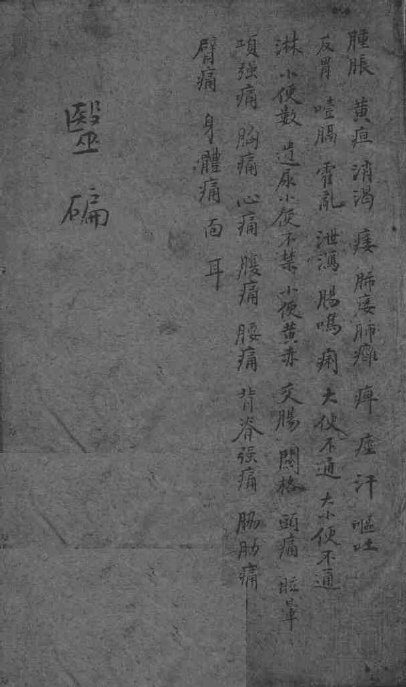 腫脹 黄疸 消渴 痿 肺痿肺癰 痺 痙 汗 嘔吐
反胃 噎膈 霍亂 泄瀉 腸鳴 痢 大便不通 大小便不通
淋 小便數 遺尿小便不禁 小便黄赤 交腸 關格 頭痛 眩暈
項强痛 胸痛 心痛 腹痛 腰痛 背脊强痛 脇肋痛
臂痛 身體痛 面 耳
醫碥